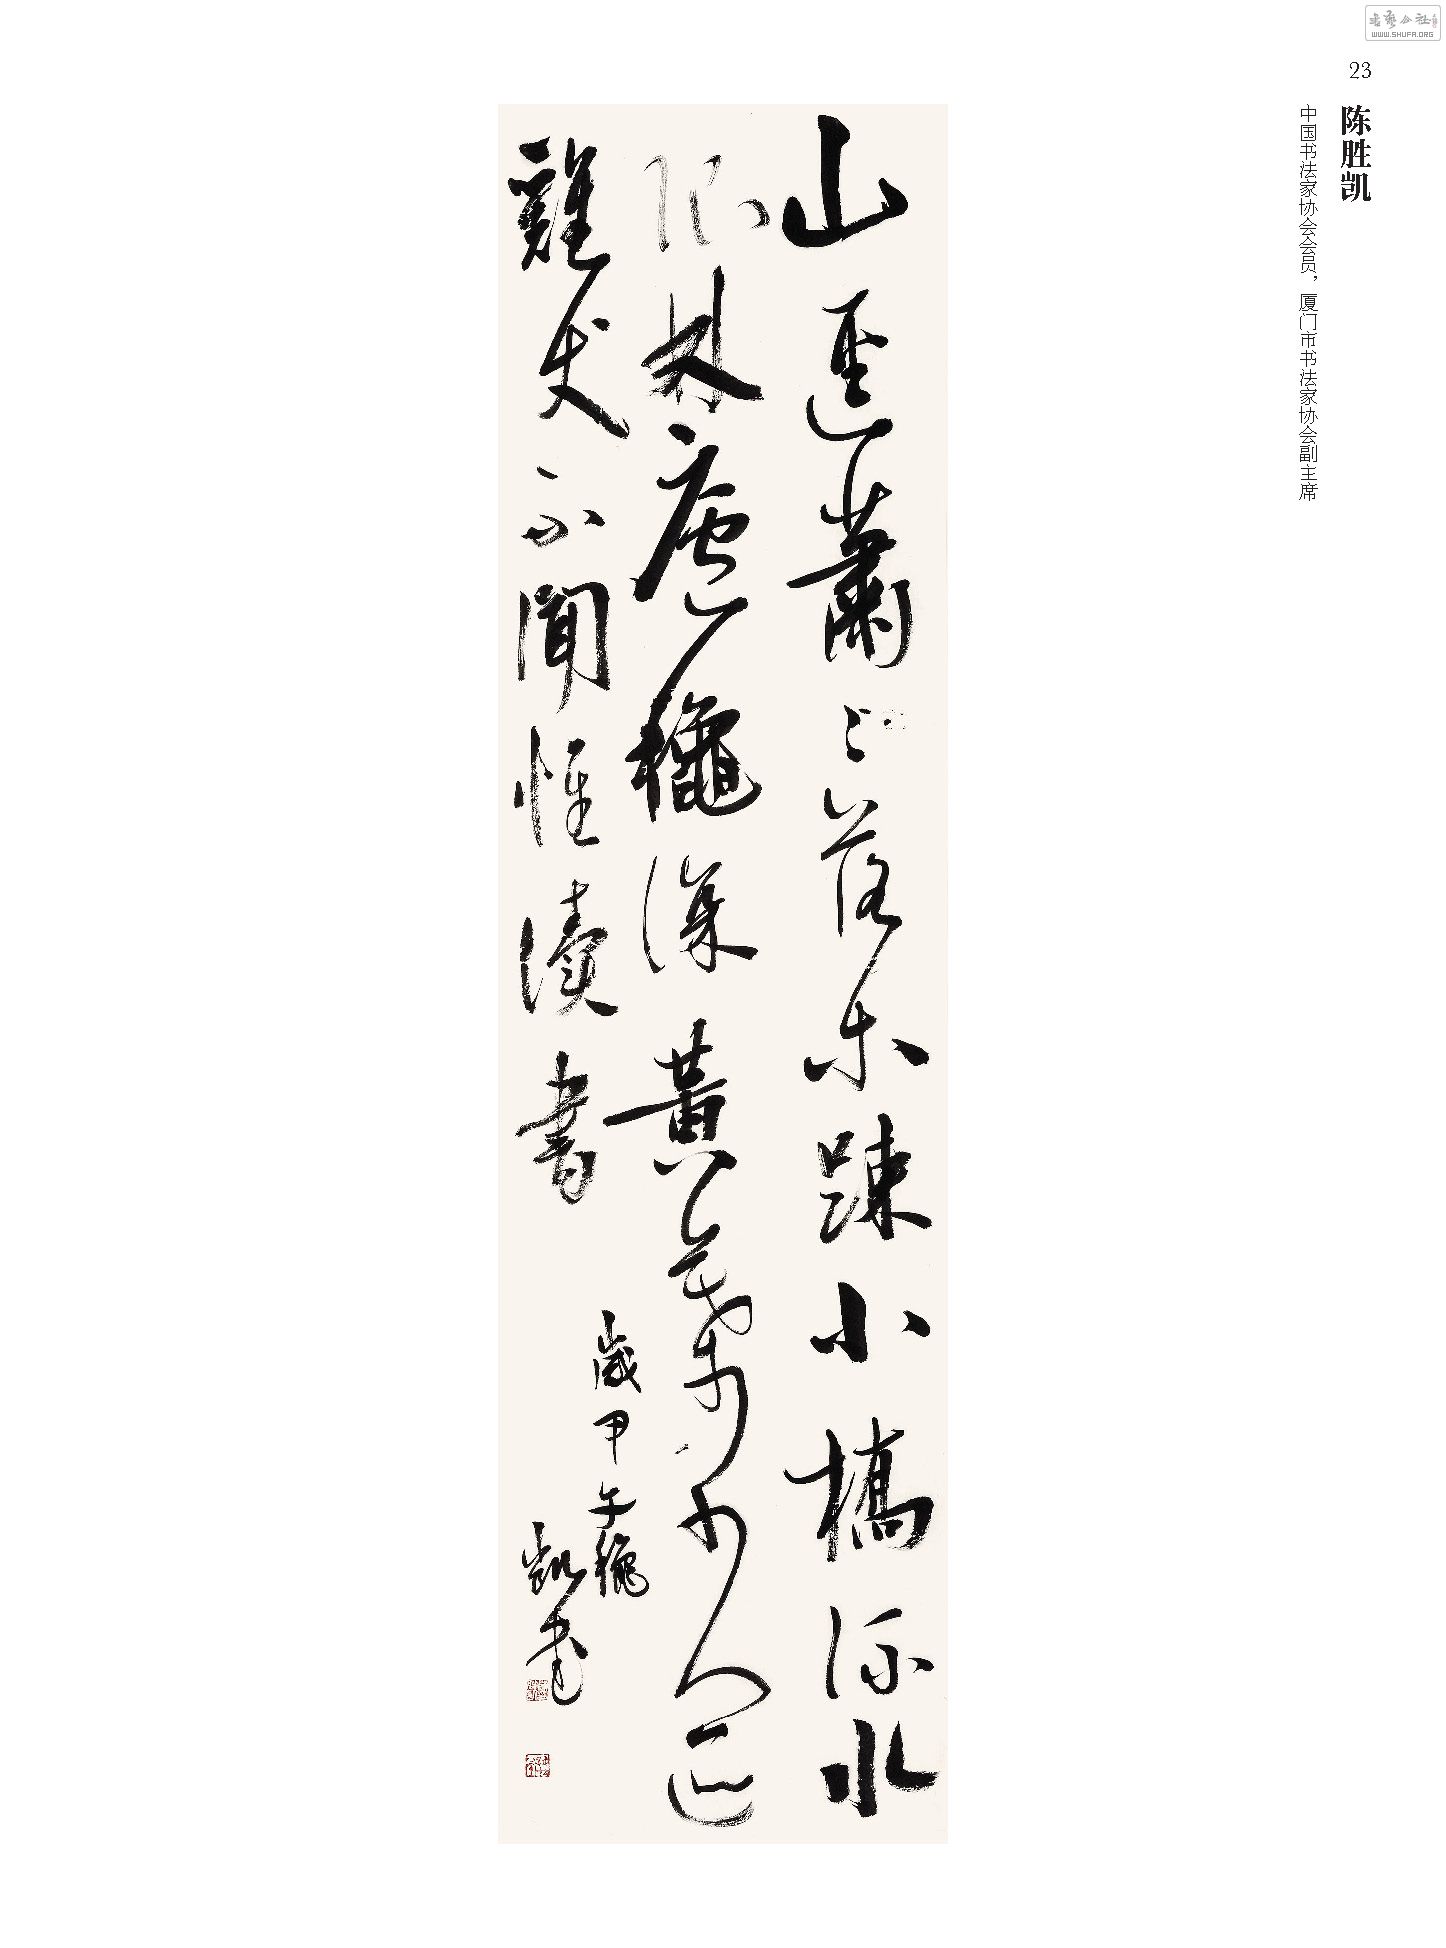 书艺公社
WWW.SHUFA.ORG
23
陈胜凯
中国书法家协会会员，厦门市书法家协会副主席
山逕蕭〻落木疎小橋流水
隔林廬龝深黃葉少人迹
雞犬不聞惟讀書
歲甲午龝
凱書